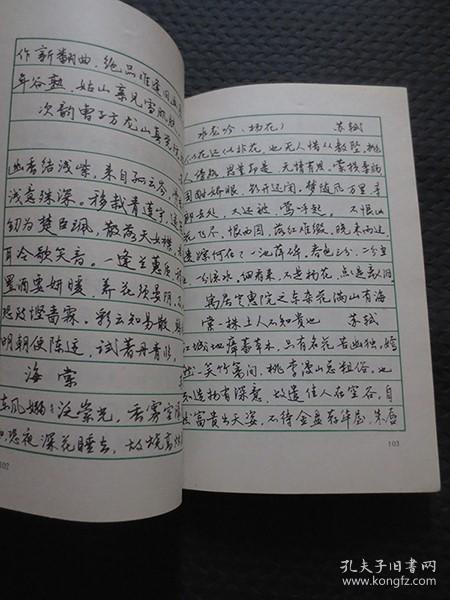 作新翻曲，绝品难逢
年谷熟，姑山亲见雪
次韵曹子方龙山真觉
幽香结浅紫，来自孤云岑
浅意殊深。移栽青莲宇
纫为楚臣佩，散落天女襟
耳冷歌笑音。一逢兰蕙质
墨洒要妍暖，养花须晏阴
忽慳啬霖。彩云知易散
明朝便陈迹，试著丹青临
海棠
东风嫋嫋泛崇光，香雾空
恐夜深花睡去，故烧高
102
水龙吟（杨花） 苏轼
似花还似非花，也无人惜从教坠。抛
街傍路，思量却是，无情有思。萦损柔肠
困酣娇眼，欲开还闭。梦随风万里，寻
郎去处，又还被，莺呼起。 不恨此
花飞尽，恨西园，落红难缀。晓来雨过
遗踪何在？一池萍碎。春色三分，二分尘
一份流水。细看来，不是杨花，点点是离人泪。
寓居定惠院之东杂花满山有海
棠一株土人不知贵也 苏轼
江城地瘴蕃草木，只有名花苦幽独。嫣
然一笑竹篱间，桃李漫山总粗俗。也
知造物有深意，故遣佳人在空谷。自
然富贵出天姿，不待金盘荐华屋。朱唇
103
孔夫子旧书网
www.kongfz.com